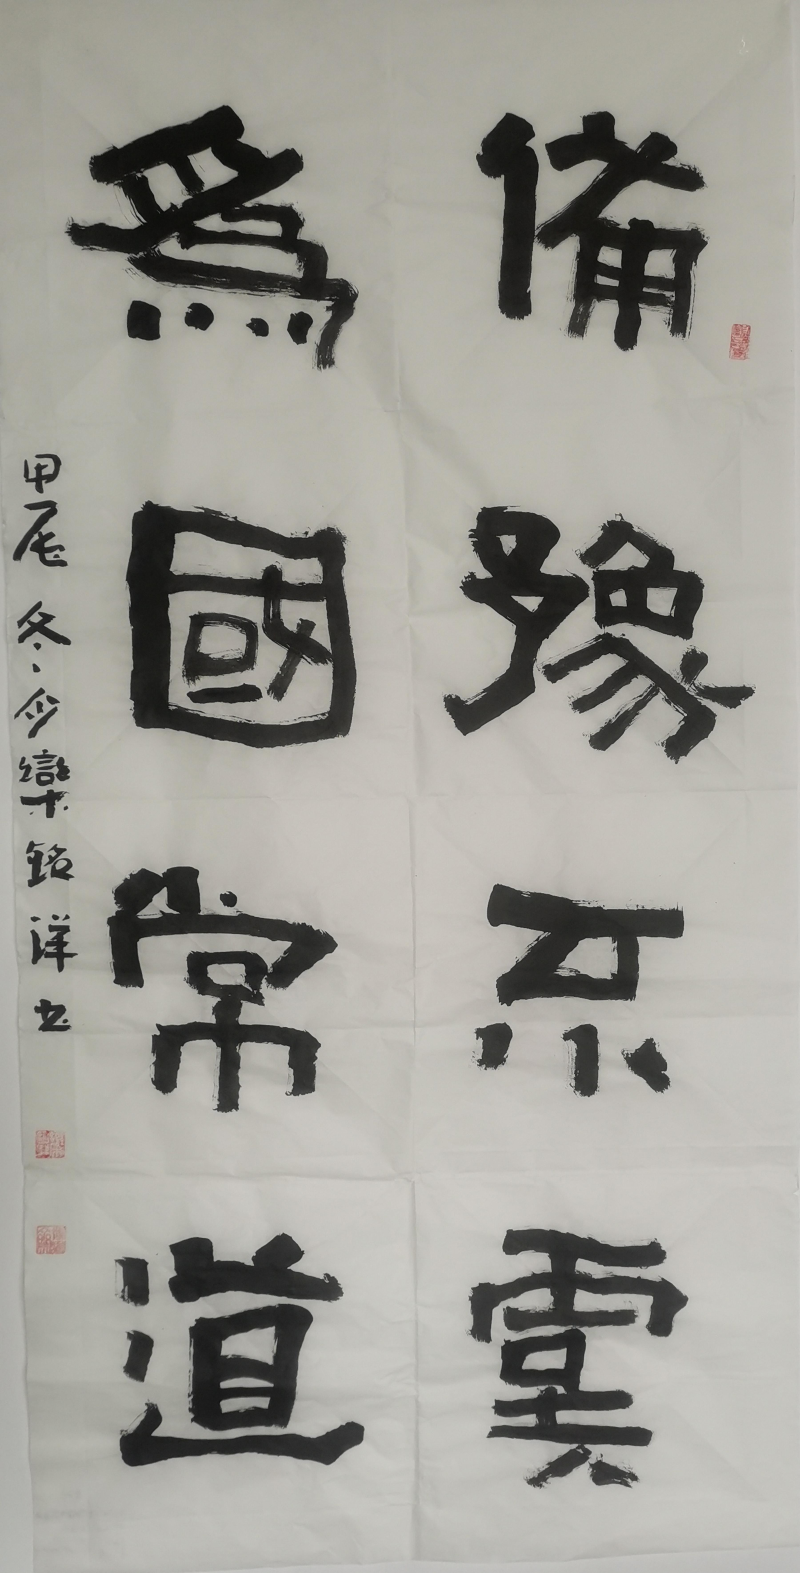 備豫不虞
為國常道
甲辰冬月欒銘洋书